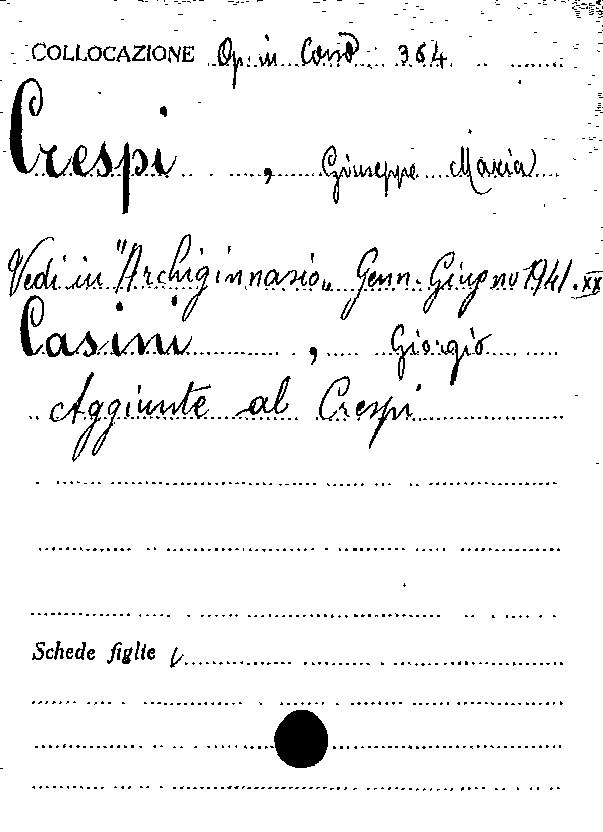 COLLOCAZIONE Op. in Cons 364
Crespi, Giuseppe Maria
Vedi in "Archiginnasio" Genn.-Giugno 1941.XX
Casini, Giorgio
Aggiunte al Crespi
Schede figlie